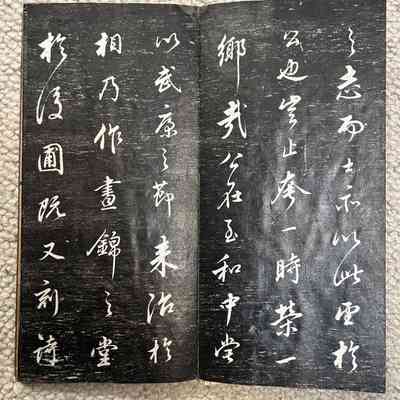 之志而士亦以此望於
公也豈止夸一時榮一
鄉哉公在至和中嘗
以武康之節來治於
相乃作晝錦之堂
於後圃既又刻詩